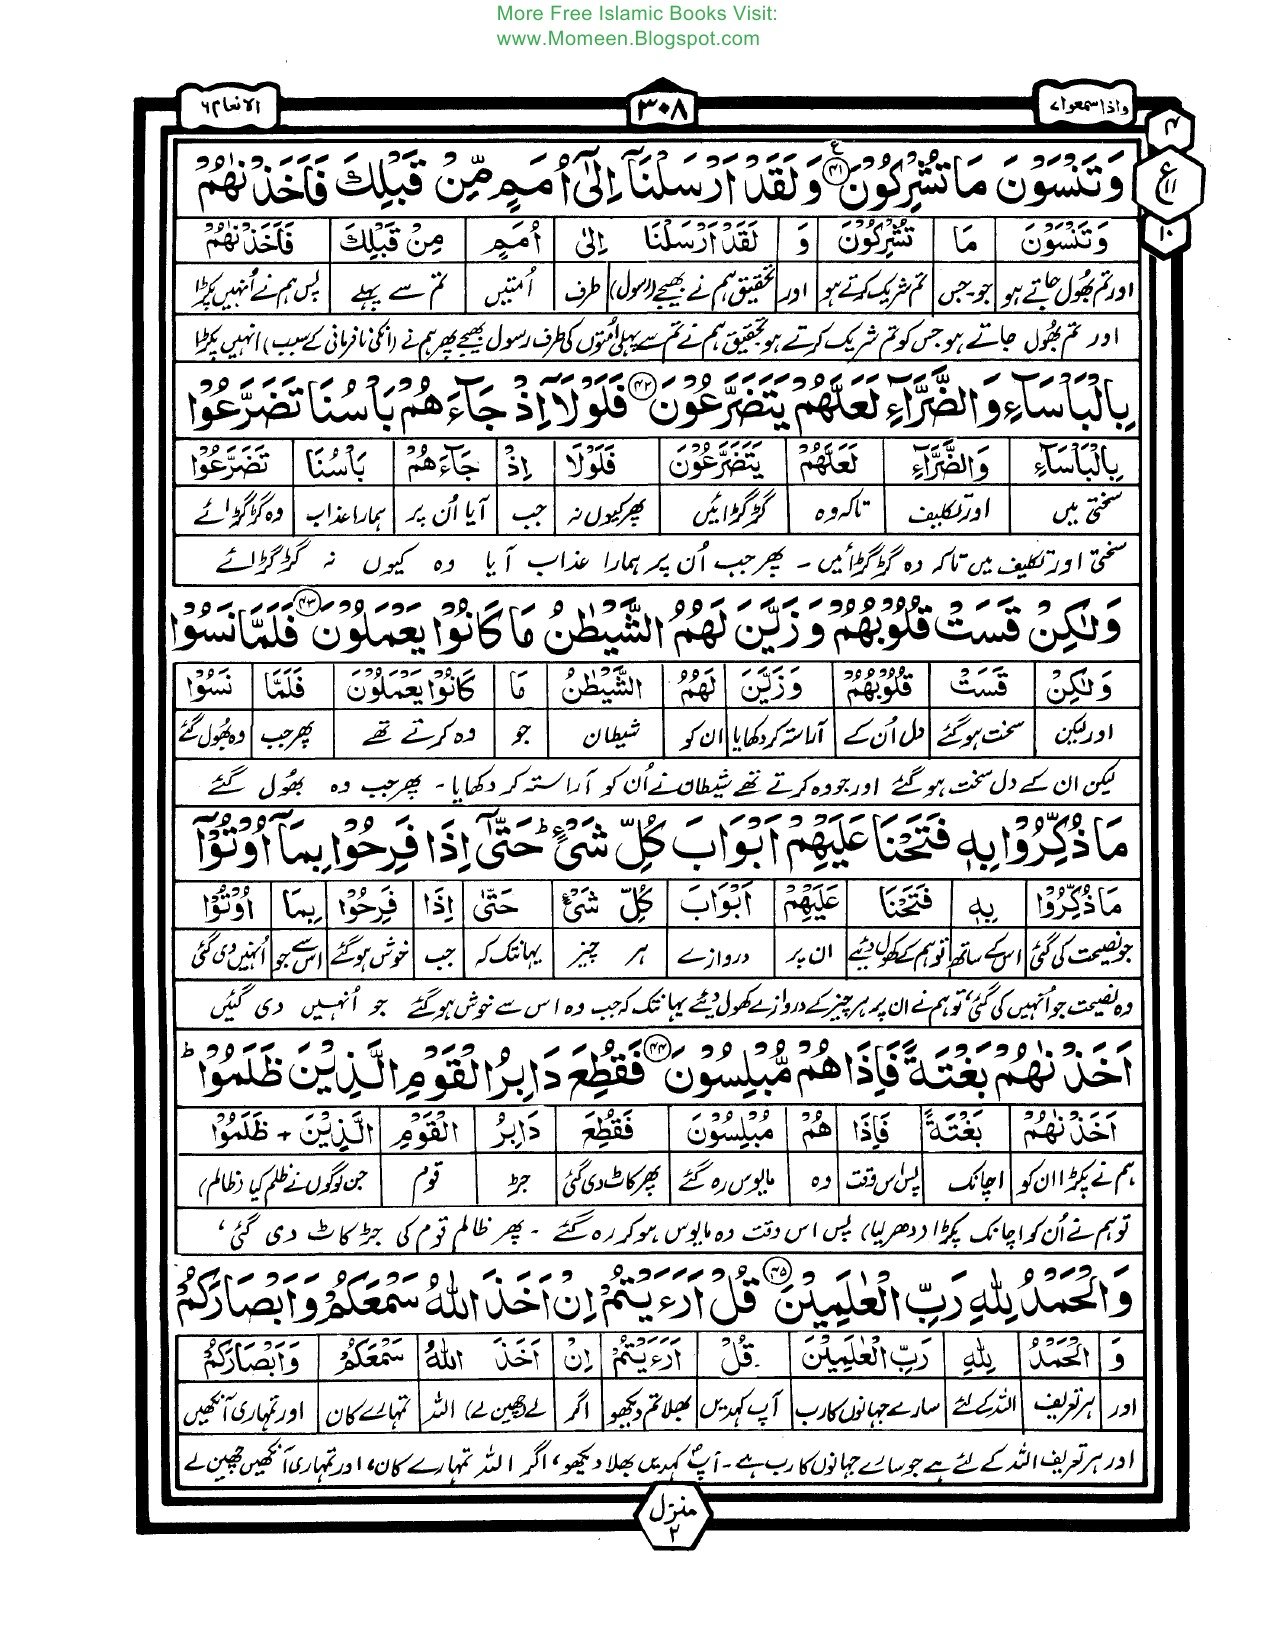 More Free Islamic Books Visit:
www.Momeen.Blogspot.com
واذا سمعوا ۷
۳۰۸
الانعام ۶
۴
ع
۱۱
۱۰
وَتَنْسَوْنَ مَا تُشْرِكُوْنَ ﴿۴۱﴾ وَلَقَدْ اَرْسَلْنَاۤ اِلٰۤى اُمَمٍ مِّنْ قَبْلِكَ فَاَخَذْنٰهُمْ
وَتَنْسَوْنَ مَا تُشْرِكُوْنَ وَ لَقَدْ اَرْسَلْنَا اِلٰى اُمَمٍ مِنْ قَبْلِكَ فَاَخَذْنٰهُمْ
اور تم بھول جاتے ہو جو۔جس تم شریک کرتے ہو اور تحقیق ہم نے بھیجے (رسول) طرف اُمتیں تم سے پہلے پس ہم نے اُنہیں پکڑا
اور تم بھُول جاتے ہو جس کو تم شریک کرتے ہو تحقیق ہم نے تم سے پہلی اُمتوں کی طرف رسول بھیجے پھر ہم نے (انکی نافرمانی کے سبب) انہیں پکڑا
بِالْبَاْسَآءِ وَالضَّرَّآءِ لَعَلَّهُمْ يَتَضَرَّعُوْنَ ﴿۴۲﴾ فَلَوْلَاۤ اِذْ جَآءَهُمْ بَاْسُنَا تَضَرَّعُوْا
بِالْبَاْسَآءِ وَالضَّرَّآءِ لَعَلَّهُمْ يَتَضَرَّعُوْنَ فَلَوْلَا اِذْ جَآءَهُمْ بَاْسُنَا تَضَرَّعُوْا
سختی میں اور تکلیف تاکہ وہ گڑگڑائیں پھر کیوں نہ جب آیا اُن پر ہمارا عذاب وہ گڑگڑائے
سختی اور تکلیف میں تاکہ وہ گڑگڑائیں ۔ پھر جب اُن پر ہمارا عذاب آیا وہ کیوں نہ گڑگڑائے
وَلٰكِنْ قَسَتْ قُلُوْبُهُمْ وَزَيَّنَ لَهُمُ الشَّيْطٰنُ مَا كَانُوْا يَعْمَلُوْنَ ﴿۴۳﴾ فَلَمَّا نَسُوْا
وَلٰكِنْ قَسَتْ قُلُوْبُهُمْ وَزَيَّنَ لَهُمُ الشَّيْطٰنُ مَا كَانُوْا يَعْمَلُوْنَ فَلَمَّا نَسُوْا
اور لیکن سخت ہو گئے دل اُن کے آراستہ کر دکھایا ان کو شیطان جو وہ کرتے تھے پھر جب وہ بھول گئے
لیکن ان کے دل سخت ہو گئے اور جو وہ کرتے تھے شیطان نے اُن کو آراستہ کر دکھایا ۔ پھر جب وہ بھُول گئے
مَا ذُكِّرُوْا بِهٖ فَتَحْنَا عَلَيْهِمْ اَبْوَابَ كُلِّ شَیْءٍ ؕ حَتّٰۤى اِذَا فَرِحُوْا بِمَاۤ اُوْتُوْۤا
مَا ذُكِّرُوْا بِهٖ فَتَحْنَا عَلَيْهِمْ اَبْوَابَ كُلِّ شَیْءٍ حَتّٰى اِذَا فَرِحُوْا بِمَا اُوْتُوْا
جو نصیحت کی گئی اس کے ساتھ تو ہم نے کھول دیئے ان پر دروازے ہر چیز یہانتک کہ جب خوش ہو گئے اس سے جو اُنہیں دی گئی
وہ نصیحت جو اُنہیں کی گئی، تو ہم نے ان پر ہر چیز کے دروازے کھول دیئے یہانتک کہ جب وہ اس سے خوش ہو گئے جو اُنہیں دی گئیں
اَخَذْنٰهُمْ بَغْتَةً فَاِذَا هُمْ مُّبْلِسُوْنَ ﴿۴۴﴾ فَقُطِعَ دَابِرُ الْقَوْمِ الَّذِيْنَ ظَلَمُوْا ؕ
اَخَذْنٰهُمْ بَغْتَةً فَاِذَا هُمْ مُبْلِسُوْنَ فَقُطِعَ دَابِرُ الْقَوْمِ الَّذِيْنَ + ظَلَمُوْا
ہم نے پکڑا ان کو اچانک پس اس وقت وہ مایوس رہ گئے پھر کاٹ دی گئی جڑ قوم جن لوگوں نے ظلم کیا (ظالم)
تو ہم نے اُن کو اچانک پکڑا (دھر لیا) پس اس وقت وہ مایوس ہو کر رہ گئے ۔ پھر ظالم قوم کی جڑ کاٹ دی گئی،
وَالْحَمْدُ لِلّٰهِ رَبِّ الْعٰلَمِيْنَ ﴿۴۵﴾ قُلْ اَرَءَيْتُمْ اِنْ اَخَذَ اللّٰهُ سَمْعَكُمْ وَاَبْصَارَكُمْ
وَ الْحَمْدُ لِلّٰهِ رَبِّ الْعٰلَمِيْنَ قُلْ اَرَءَيْتُمْ اِنْ اَخَذَ اللّٰهُ سَمْعَكُمْ وَاَبْصَارَكُمْ
اور ہر تعریف اللہ کے لئے سارے جہانوں کا رب آپ کہدیں بھلا تم دیکھو اگر لے (چھین لے) اللہ تمہارے کان اور تمہاری آنکھیں
اور ہر تعریف اللہ کے لئے ہے جو سارے جہانوں کا رب ہے ۔ آپؐ کہدیں بھلا دیکھو، اگر اللہ تمہارے کان، اور تمہاری آنکھیں چھین لے
منزل
۲